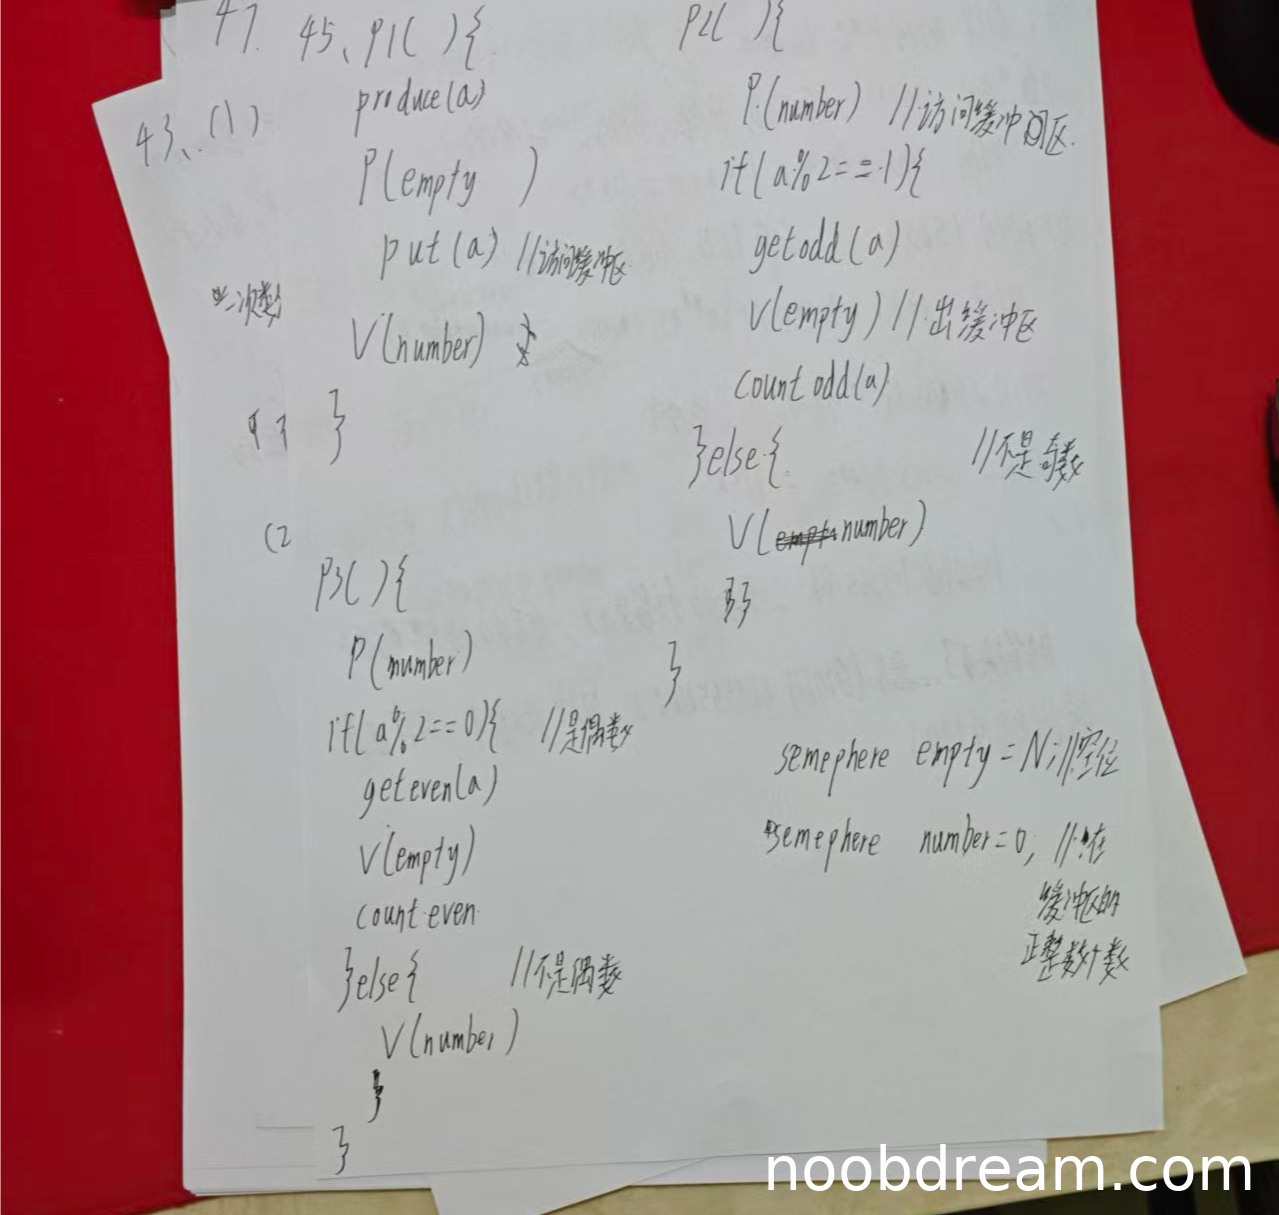 47.
43、(1)
二次数
(2
45、P1( ){
produce(a)
P(empty )
put(a) //访问缓冲区
V(number)
}
P2( ){
P(number) //访问缓冲区
if(a%2==1){
getodd(a)
V(empty) //出缓冲区
countodd(a)
}else{ //不是奇数
V(number)
}
}
P3( ){
P(number)
if(a%2==0){ //是偶数
geteven(a)
V(empty)
counteven
}else{ //不是偶数
V(number)
}
}
semephere empty=N;//空位
semephere number=0; //在
缓冲区的
正整数个数
noobdream.com